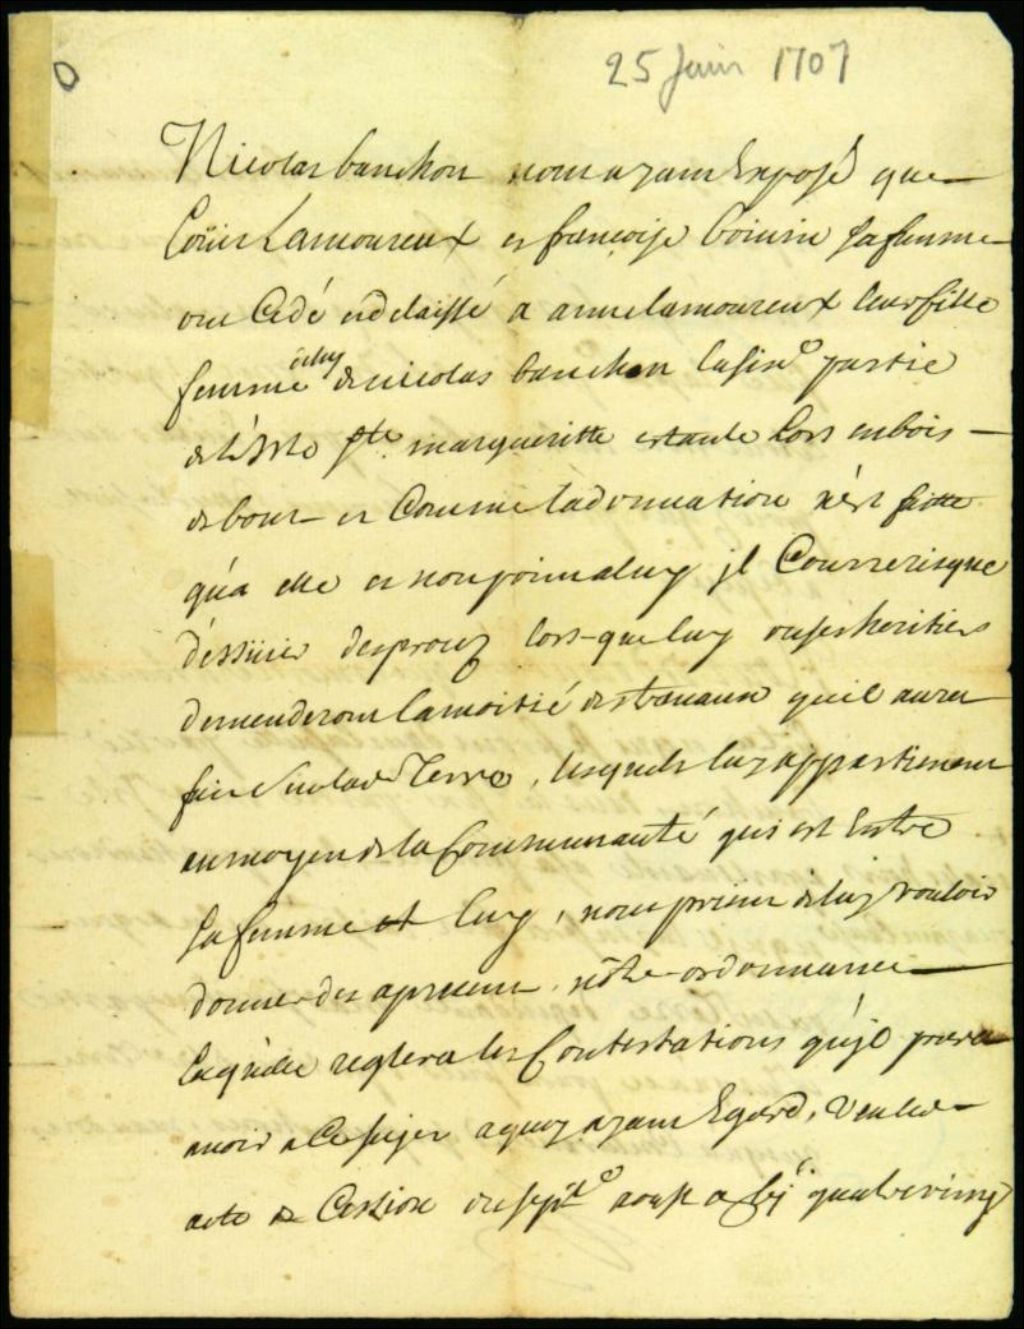 25 Juin 1707
Nicolas bauchon nous ayant Exposé que
Loüis Lamoureux et françoise boivin sa femme
ont Cedé et delaissé a anne lamoureux leur fille
femme de nicolas bauchon la sixe partie
de l'Isle ste. margueritte estante Lors en bois
debout et Comme la donnation n'est faitte
qu'a elle et non point a luy jl Courre risque
d'essuier des procez lors-que luy ou ses heritiers
demenderont la moitié des travaux qu'il aura
fait sur lad Terre, lesquels luy appartiennent
au moyen de la Communauté qui est Entre
sa femme et luy, nous priant de luy vouloir
donner des apresent nôtre ordonnance
laquelle reglera les Contestations qu'jl poura
avoir a Ce sujet a quoy ayant Egard, Veu led
acte de Cession du sept aoust quatrevingt